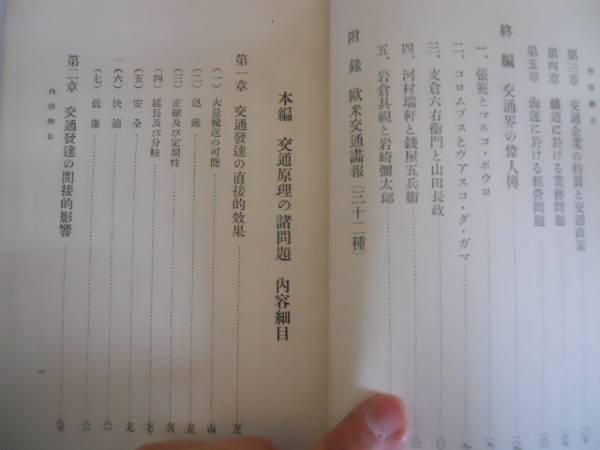 內容細目
第三章 交通企業の特質と交通政策
第四章 鐵道に於ける業務問題
第五章 海運に於ける經營問題
終編 交通界の偉人傳
一、張騫とマルコ・ポウロ
二、コロムブスとヴァスコ・ダ・ガマ
三、支倉六右衞門と山田長政
四、河村瑞軒と錢屋五兵衞
五、岩倉具視と岩崎彌太郎
附錄 歐米交通畵報(三十二種)
本編 交通原理の諸問題 內容細目
第一章 交通發達の直接的效果
(一)大量輸送の可能
(二)迅速
(三)正確及び定期性
(四)延長及び分岐
(五)安全
(六)快適
(七)低廉
第二章 交通發達の間接的影響
內容細目
一